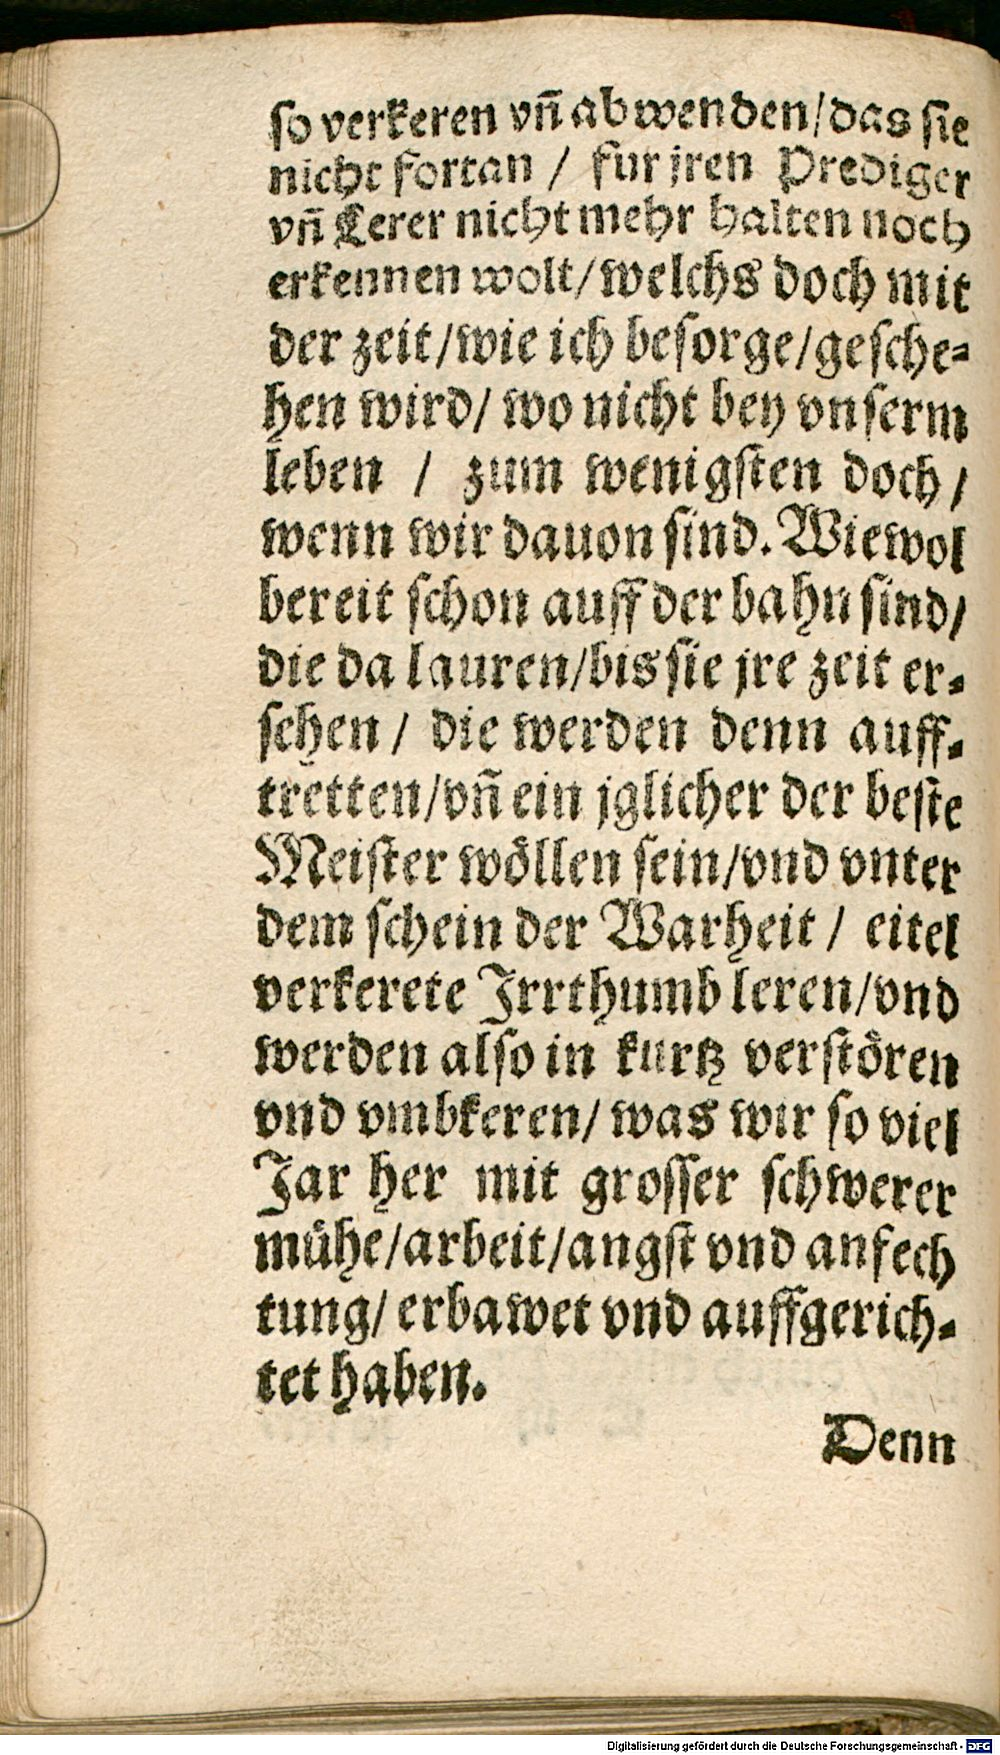 so verkeren vñ abwenden/das sie
nicht fortan / fur jren Prediger
vñ Lerer nicht mehr halten noch
erkennen wolt/welchs doch mit
der zeit/wie ich besorge/gesche-
hen wird/ wo nicht bey vnserm
leben / zum wenigsten doch/
wenn wir dauon sind. Wiewol
bereit schon auff der bahn sind/
die da lauren/bis sie jre zeit er-
sehen/ die werden denn auff-
tretten/vñ ein jglicher der beste
Meister wöllen sein/vnd vnter
dem schein der Warheit / eitel
verkerete Irrthumb leren/vnd
werden also in kurtz verstören
vnd vmbkeren/ was wir so viel
Jar her mit grosser schwerer
mühe/arbeit/angst vnd anfech
tung/ erbawet vnd auffgerich-
tet haben.
Denn
Digitalisierung gefördert durch die Deutsche Forschungsgemeinschaft - DFG